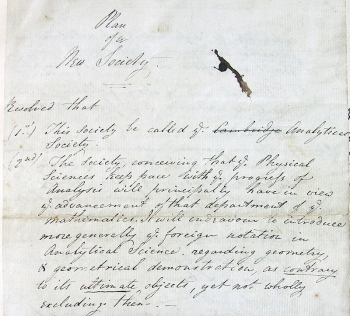 Plan
of a
New Society.
Resolved that
(1st) This Society be called ye Cambridge Analytical
Society.
(2nd) The Society, conceiving that ye Physical
Sciences keep pace with ye progress of
Analysis will principally have in view
ye advancement of that department of ye
mathematics. It will endeavour to introduce
more generally ye foreign notation in
Analytical Science, regarding geometry,
& geometrical demonstration, as contrary
to its ultimate objects, yet not wholly
excluding them. —